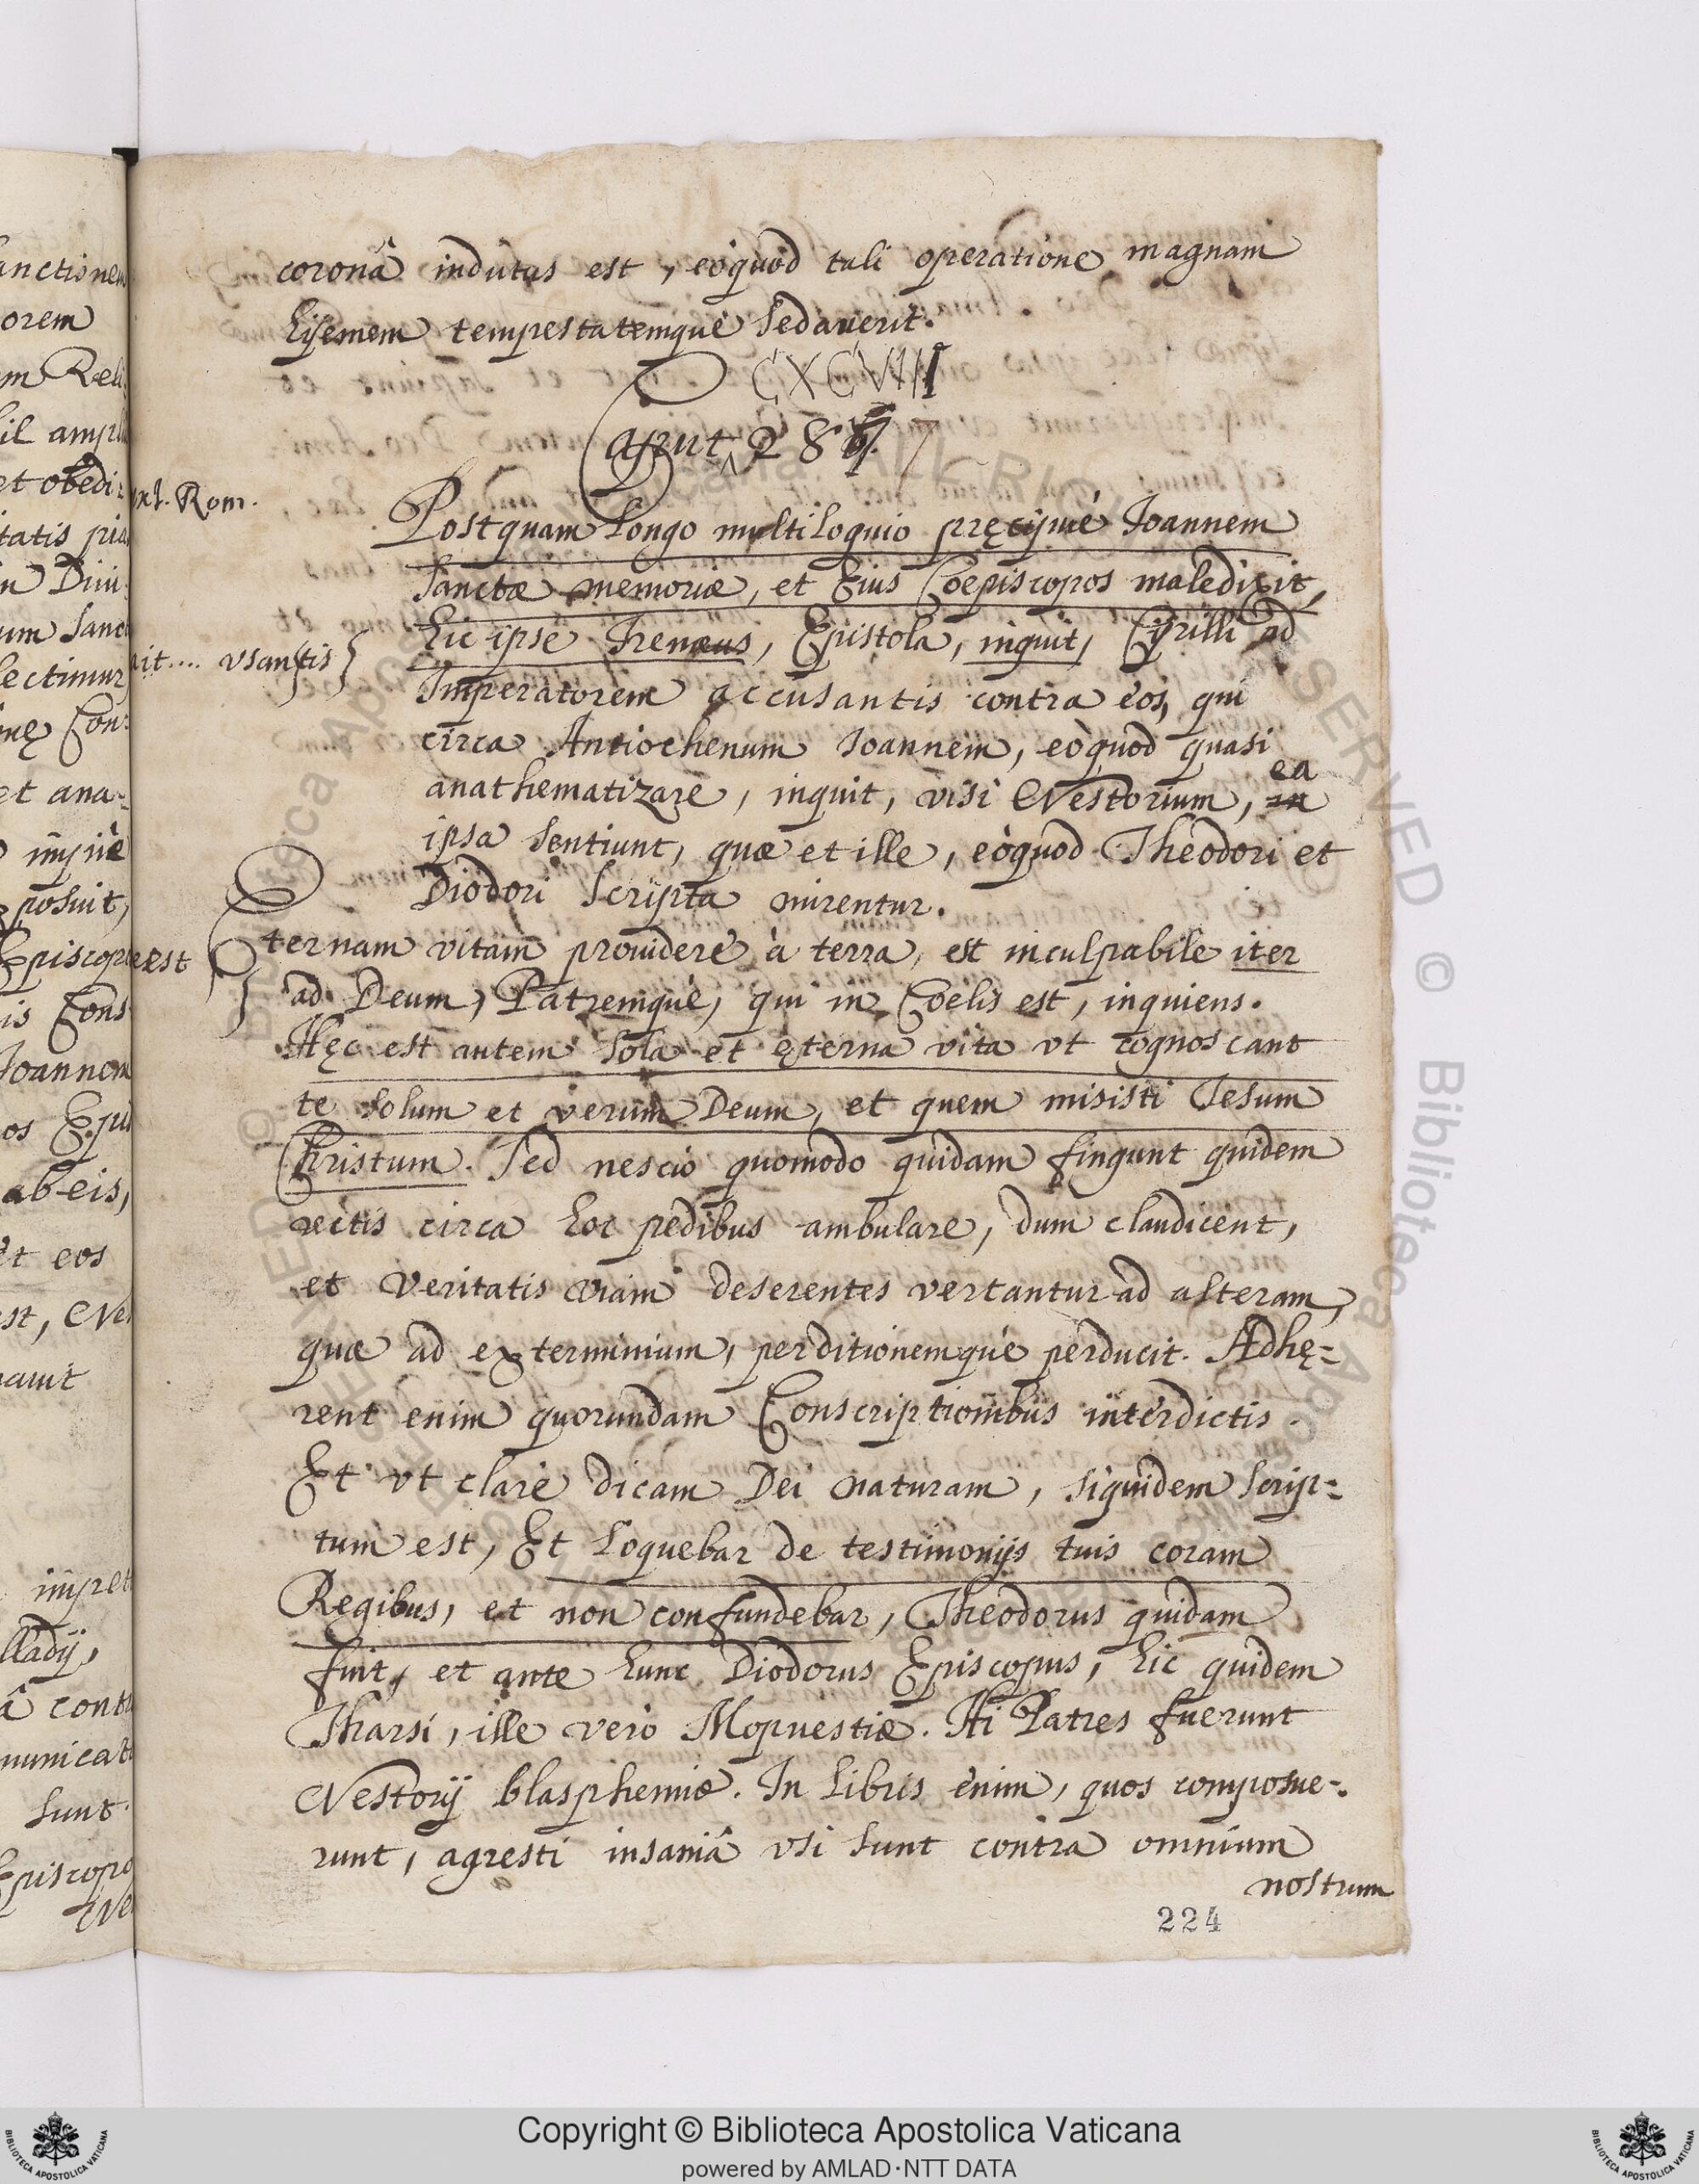 coronâ indutus est, eòquod tali operatione magnam
hyemem tempestatemque sedauerit.
CXCVIII
Caput 287
ext. Rom.
Postquam longo multiloquio pręcipuè Ioannem
sanctæ memoriæ, et Eius Coepiscopos maledixit,
hic ipse Irenæus, Epistola, inquit, Cyrilli ad
ait.... usantis}
Imperatorem accusantis contra eos, qui
circa Antiochenum Ioannem, eòquod quasi
anathematizare, inquit, visi Nestorium, ea
ipsa sentiunt, quæ et ille, eòquod Theodori et
Diodori Scripta mirentur.
est
Eternam vitam prouidere à terra, est inculpabile iter
ad Deum, Patremque, qui in Coelis est, inquiens.
Hęc est autem sola et ęterna vita vt cognoscant
te solum et verum Deum, et quem misisti Iesum
Christum. Sed nescio quomodo quidam fingunt quidem
rectis circa hoc pedibus ambulare, dum claudicent,
et veritatis viam deserentes vertantur ad alteram,
quæ ad exterminium, perditionemque perducit. Adhę=
rent enim quorundam Conscriptionibus interdictis.
Et vt clare dicam Dei naturam, siquidem scrip=
tum est, Et loquebar de testimonijs tuis coram
Regibus, et non confundebar, Theodorus quidam
fuit, et ante hunc Diodorus Episcopus, hic quidem
Tharsi, ille verò Mopuestiæ. Hi Patres fuerunt
Nestorij blasphemiæ. In libris enim, quos composue=
runt, agresti insaniâ vsi sunt contra omnium
nostrum
224
Copyright © Biblioteca Apostolica Vaticana
powered by AMLAD·NTT DATA